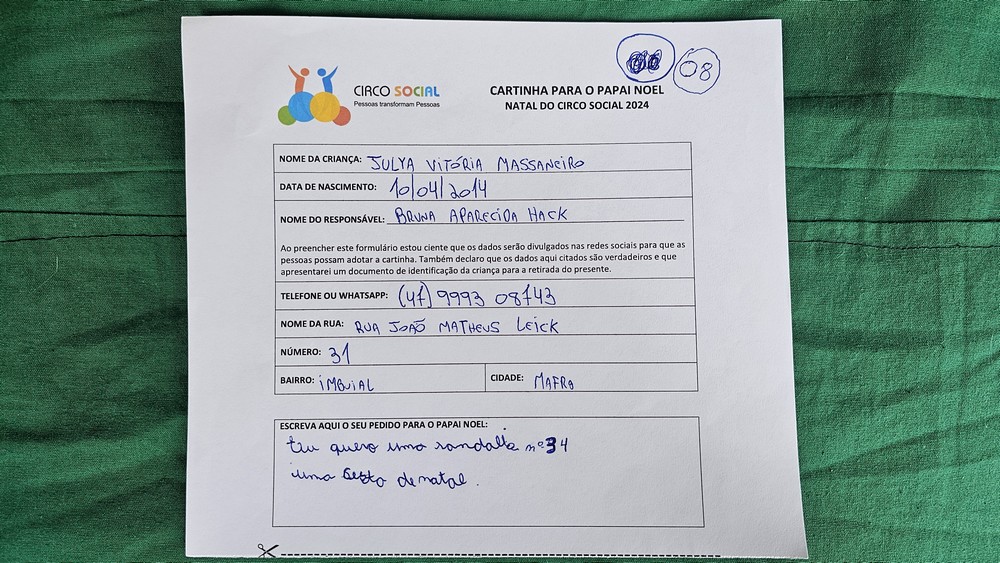 08
CIRCO SOCIAL
Pessoas transformam Pessoas
CARTINHA PARA O PAPAI NOEL
NATAL DO CIRCO SOCIAL 2024
NOME DA CRIANÇA: JULYA VITÓRIA MASSANEIRO
DATA DE NASCIMENTO: 10/04/2014
NOME DO RESPONSÁVEL: BRUNA APARECIDA HACK
Ao preencher este formulário estou ciente que os dados serão divulgados nas redes sociais para que as
pessoas possam adotar a cartinha. Também declaro que os dados aqui citados são verdadeiros e que
apresentarei um documento de identificação da criança para a retirada do presente.
TELEFONE OU WHATSAPP: (47) 9993 08743
NOME DA RUA: RUA JOAÕ MATHEUS LEICK
NÚMERO: 31
BAIRRO: IMBUIAL CIDADE: MAFRA
ESCREVA AQUI O SEU PEDIDO PARA O PAPAI NOEL:
Eu quero uma sandalia nº 34
uma sesta de natal.